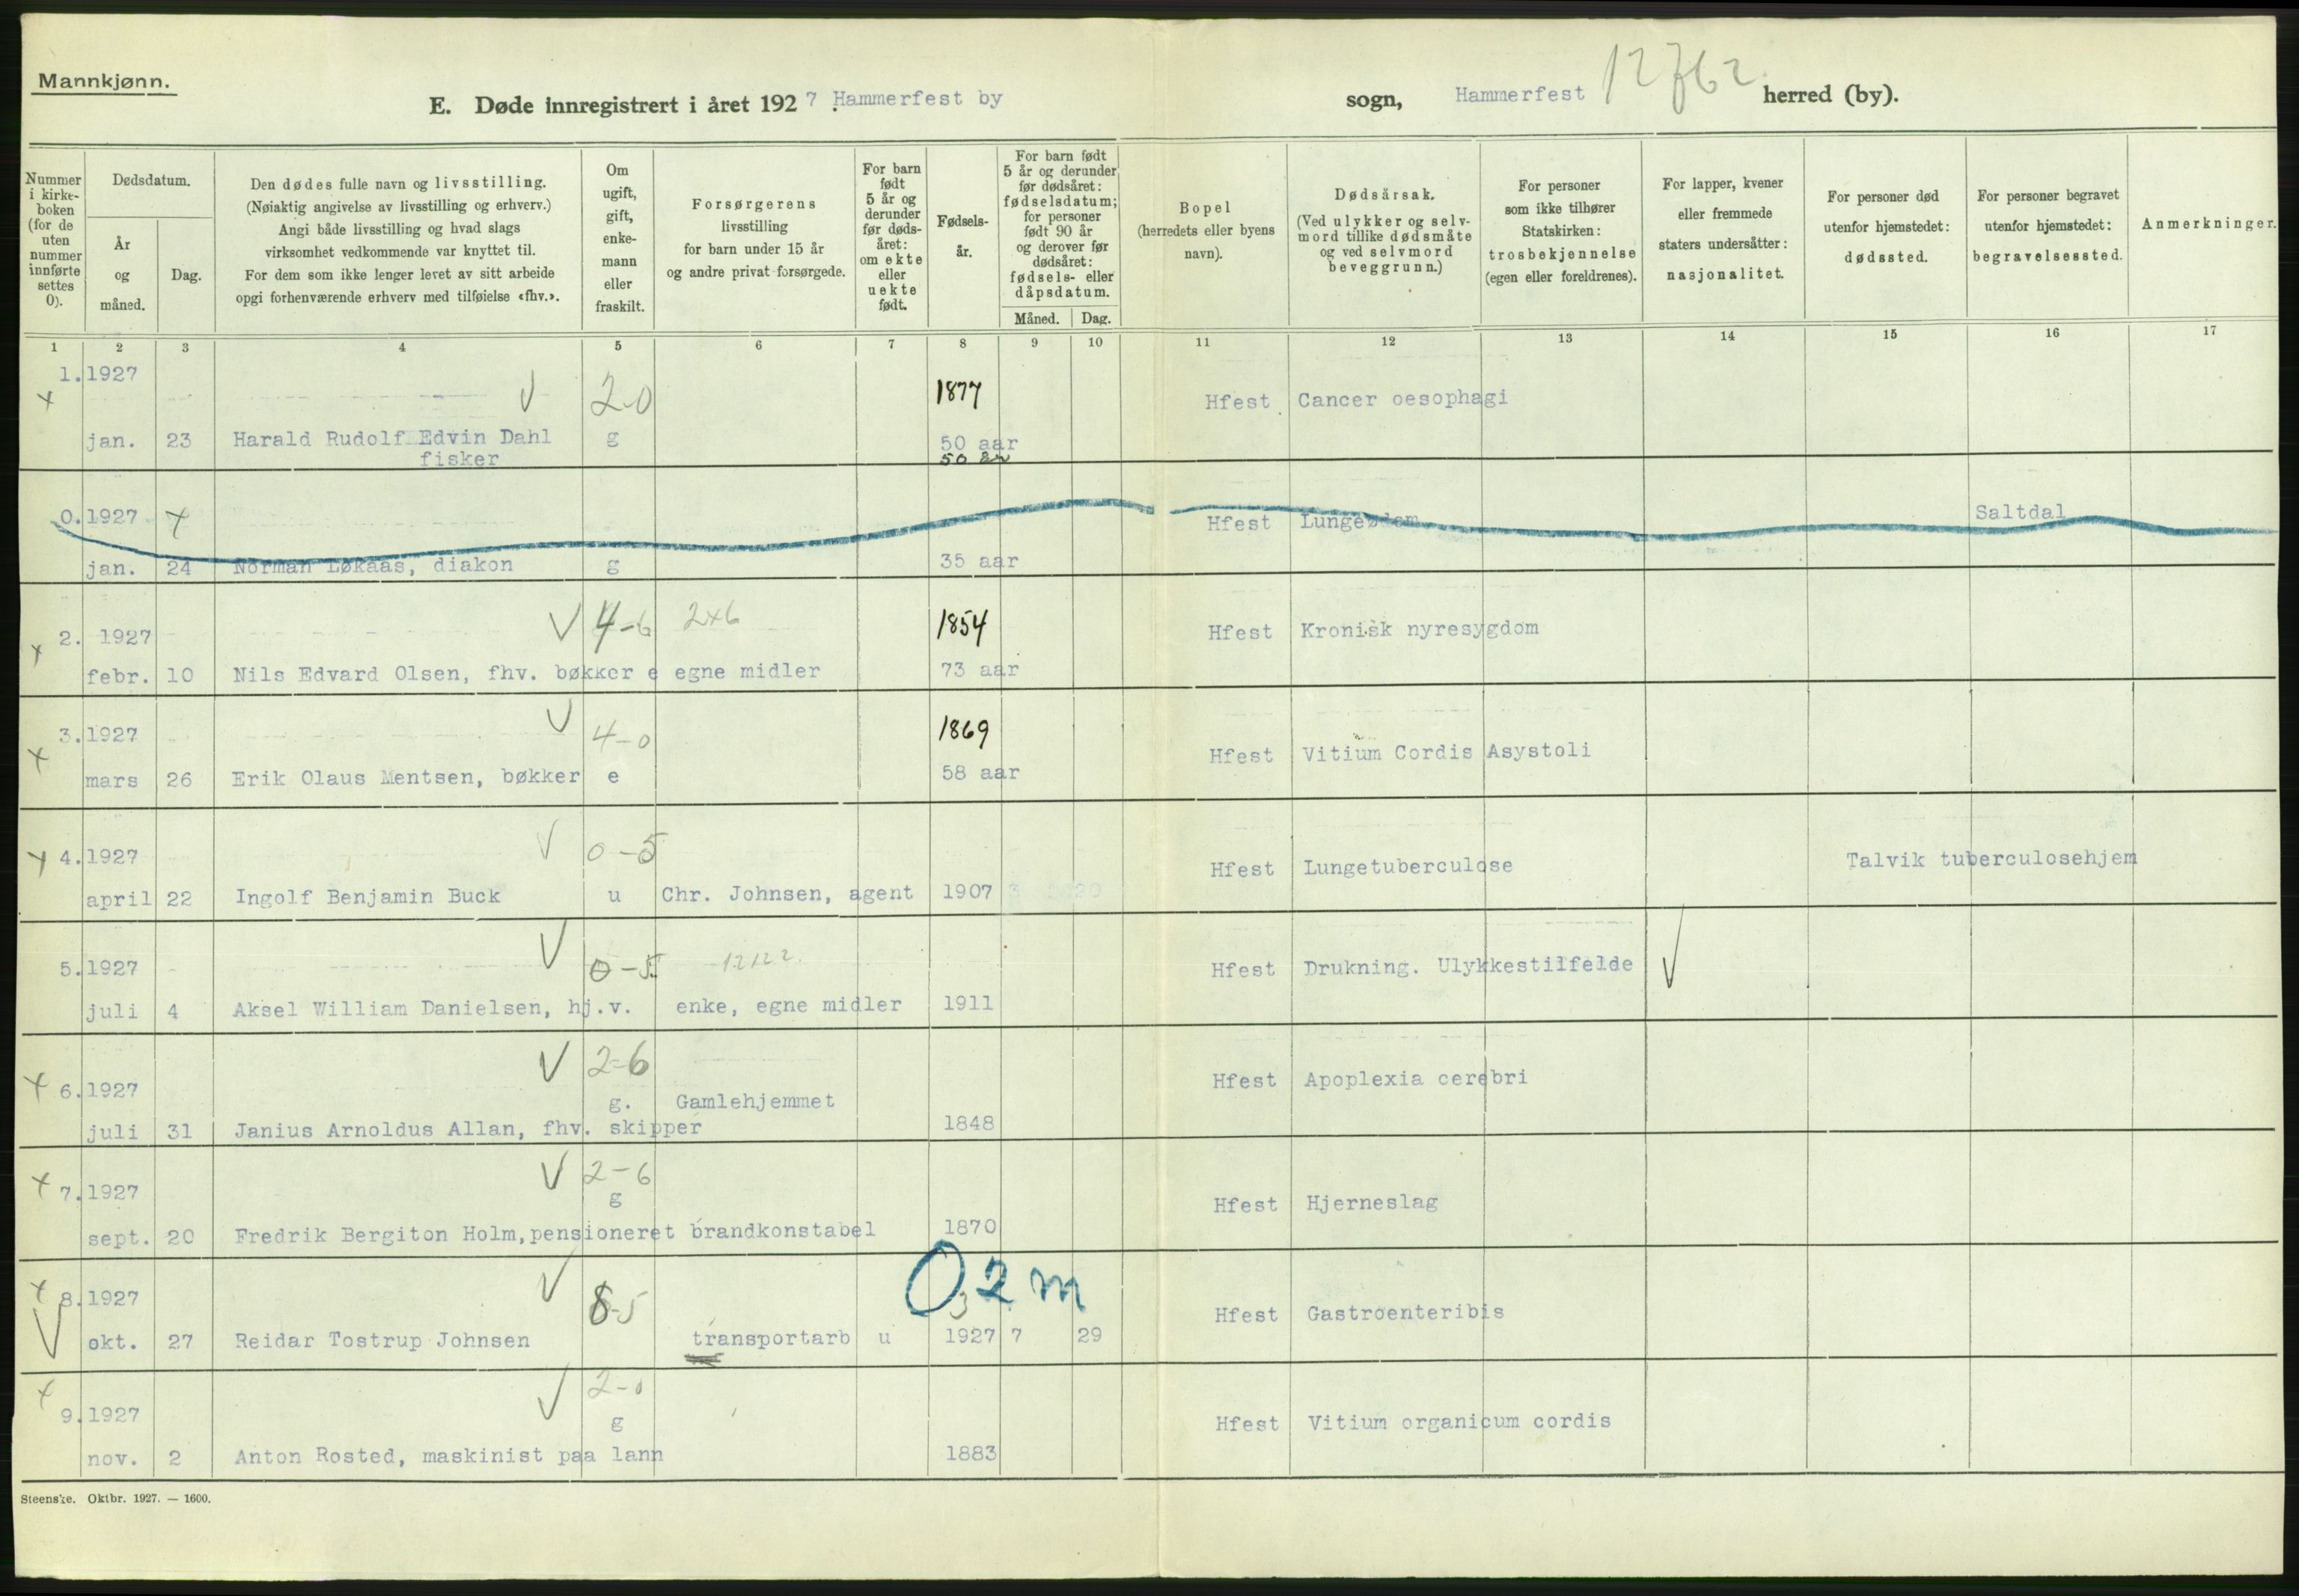 Mannkjønn.
E. Døde innregistrert i året 1927 Hammerfest by sogn, Hammerfest herred (by).
12762
Nummer i kirkeboken (for de uten nummer innførte settes 0).
Dødsdatum.
År og måned.
Dag.
Den dødes fulle navn og livsstilling.
(Nøiaktig angivelse av livsstilling og erhverv.)
Angi både livsstilling og hvad slags
virksomhet vedkommende var knyttet til.
For dem som ikke lenger levet av sitt arbeide
opgi forhenværende erhverv med tilføielse «fhv.».
Om ugift, gift, enkemann eller fraskilt.
Forsørgerens
livsstilling
for barn under 15 år
og andre privat forsørgede.
For barn født 5 år og derunder før dødsåret: om ekte eller uekte født.
Fødselsår.
For barn født 5 år og derunder før dødsåret: fødselsdatum; for personer født 90 år og derover før dødsåret: fødsels- eller dåpsdatum.
Måned. Dag.
Bopel
(herredets eller byens
navn).
Dødsårsak.
(Ved ulykker og selvmord tillike dødsmåte og ved selvmord beveggrunn.)
For personer som ikke tilhører Statskirken: trosbekjennelse (egen eller foreldrenes).
For lapper, kvener eller fremmede staters undersåtter: nasjonalitet.
For personer død utenfor hjemstedet: dødssted.
For personer begravet utenfor hjemstedet: begravelsessted.
Anmerkninger.
1 2 3 4 5 6 7 8 9 10 11 12 13 14 15 16 17
1. 1927 2-0 1877 Hfest Cancer oesophagi
jan. 23 Harald Rudolf Edvin Dahl g 50 aar
fisker 50 år
0. 1927 Hfest Lungeødem Saltdal
jan. 24 Norman Løkaas, diakon g 35 aar
2. 1927 4-6 2x6 1854 Hfest Kronisk nyresygdom
febr. 10 Nils Edvard Olsen, fhv. bøkker e egne midler 73 aar
3. 1927 4-0 1869 Hfest Vitium Cordis Asystoli
mars 26 Erik Olaus Mentsen, bøkker e 58 aar
4. 1927 0-5 Hfest Lungetuberculose Talvik tuberculosehjem
april 22 Ingolf Benjamin Buck u Chr. Johnsen, agent 1907
5. 1927 0-5 Hfest Drukning. Ulykkestilfelde
juli 4 Aksel William Danielsen, hj.v. enke, egne midler 1911
6. 1927 2-6 Hfest Apoplexia cerebri
g. Gamlehjemmet
juli 31 Janius Arnoldus Allan, fhv. skipper 1848
7. 1927 2-6 Hfest Hjerneslag
g
sept. 20 Fredrik Bergiton Holm, pensioneret brandkonstabel 1870
8. 1927 8-5 0 2 m Hfest Gastroenteribis
3
okt. 27 Reidar Tostrup Johnsen transportarb u 1927 7 29
9. 1927 2-0 Hfest Vitium organicum cordis
g
nov. 2 Anton Rosted, maskinist paa lann 1883
Steenske. Oktbr. 1927. — 1600.